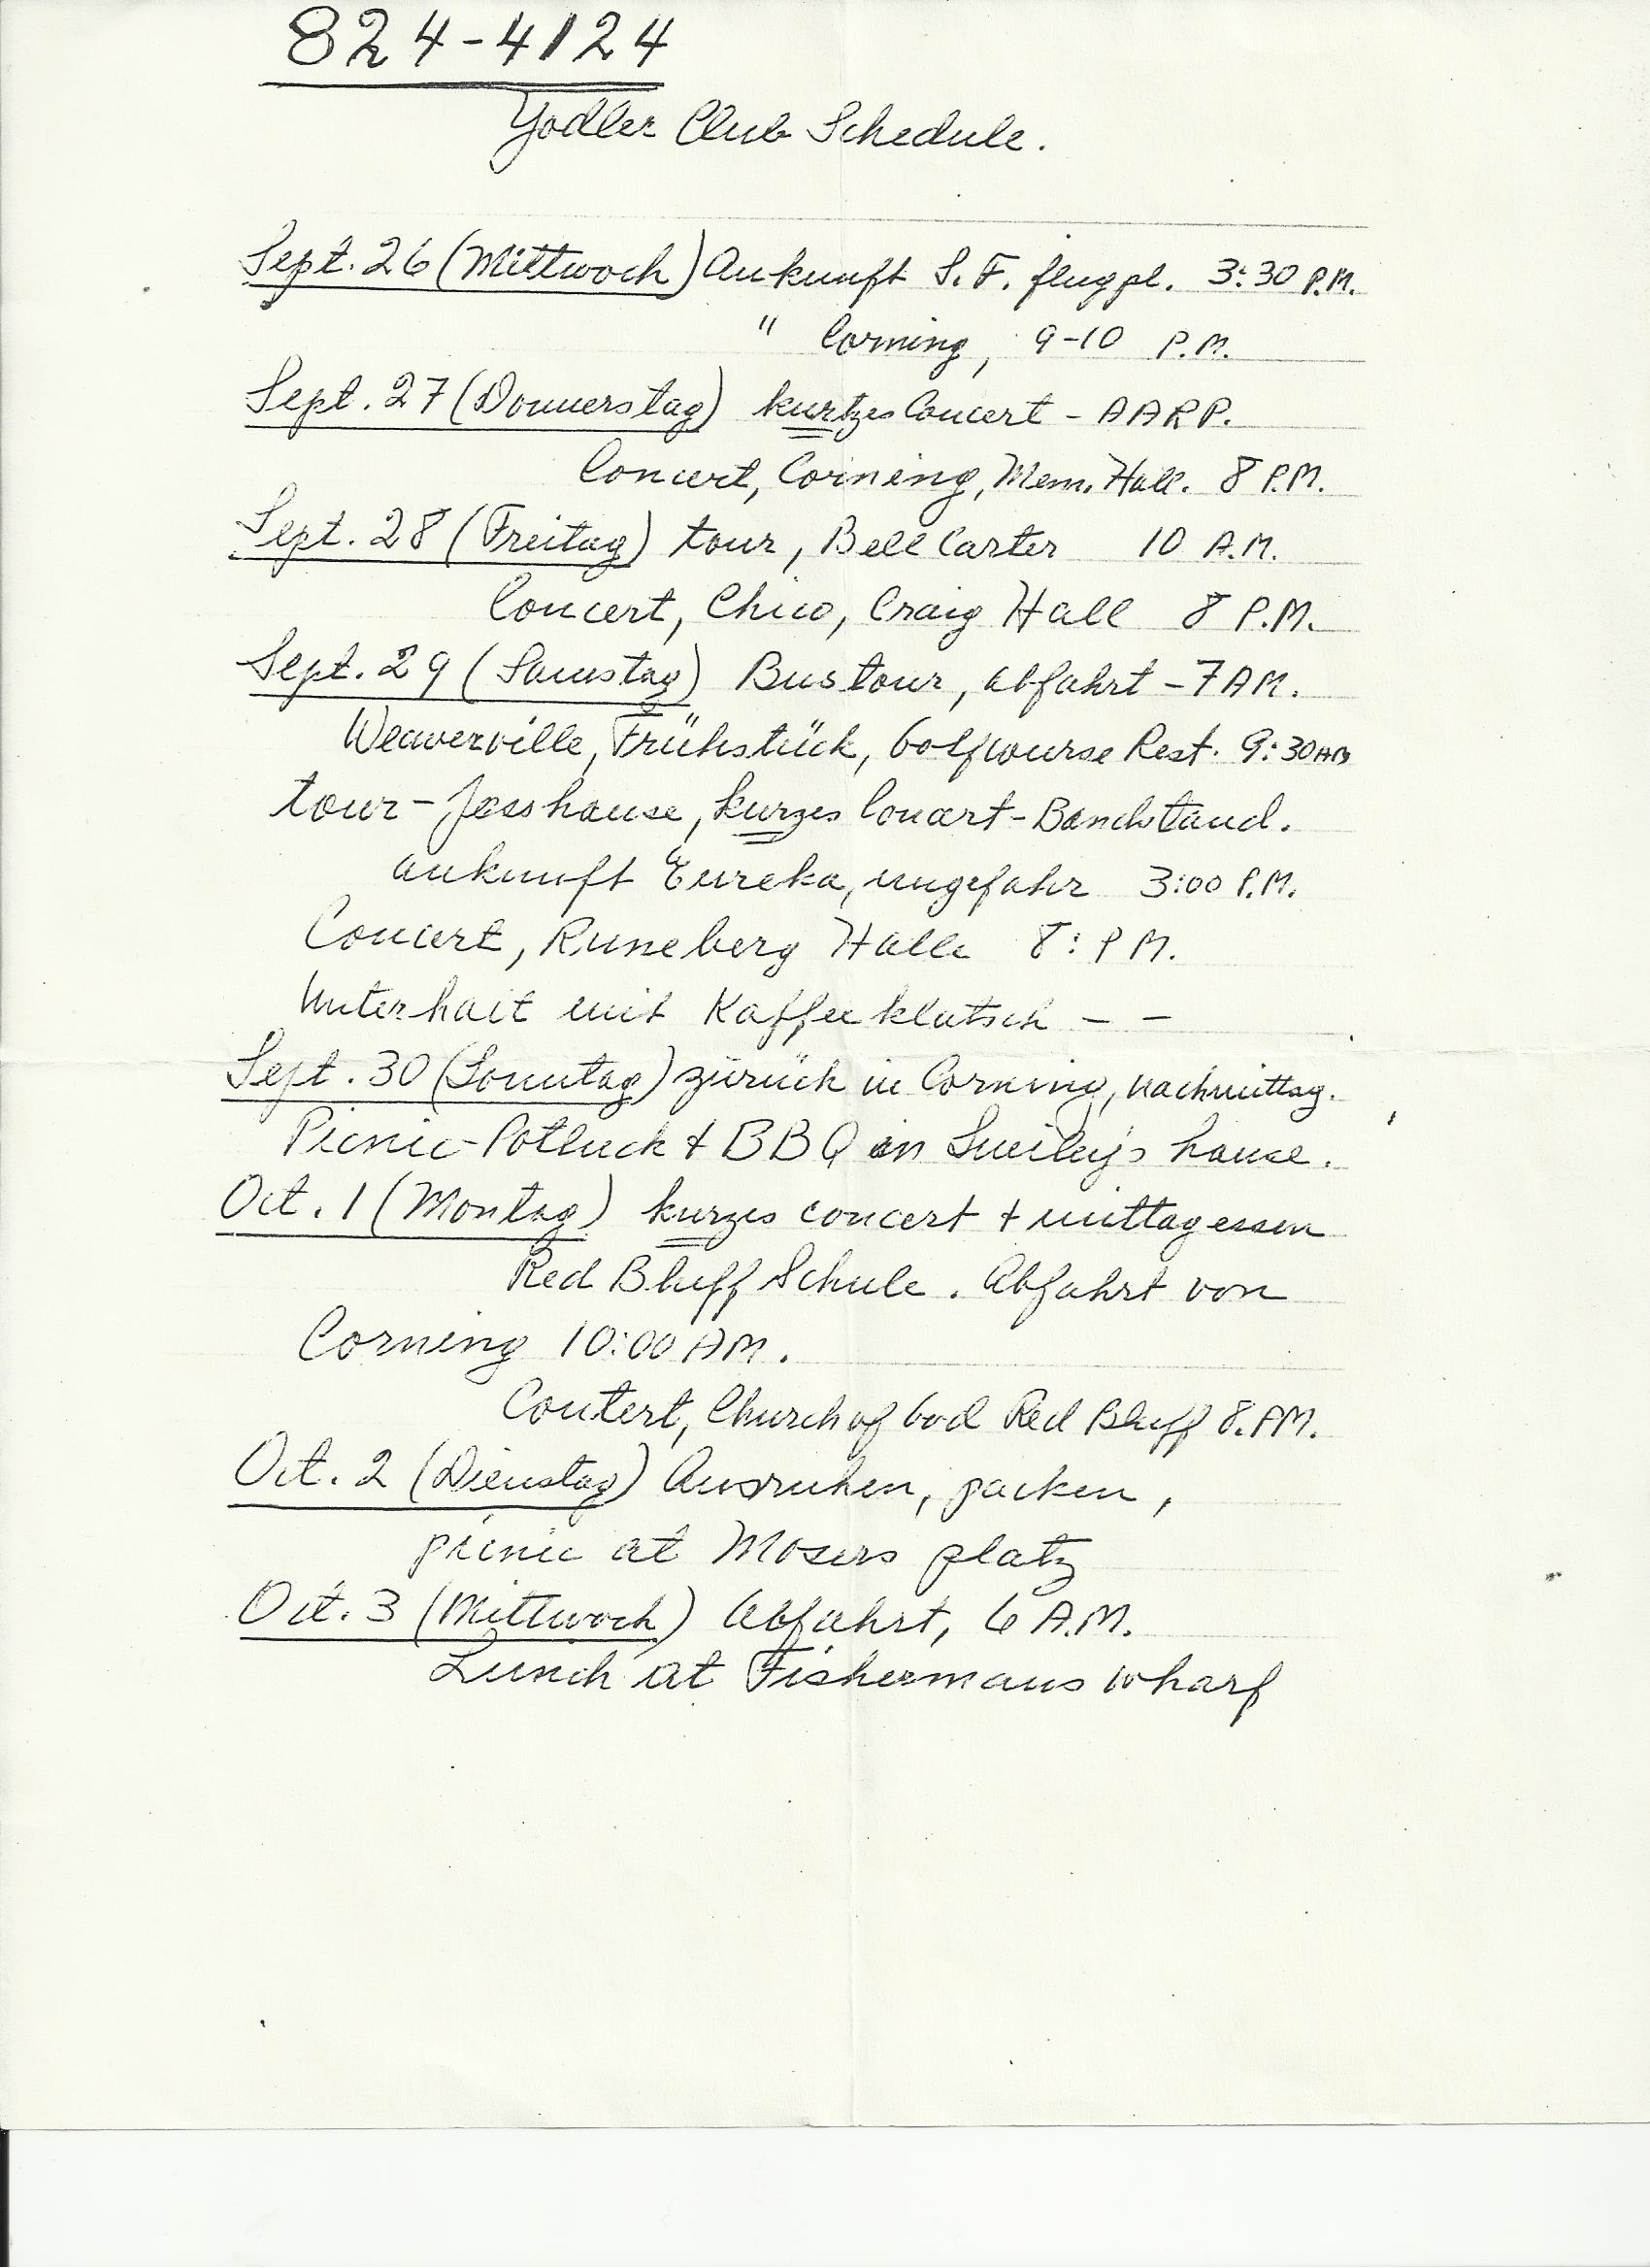 824-4124
Yodler Club Schedule.
Sept. 26 (Mittwoch) Ankunft S.F. flugpl. 3:30 P.M.
" Corning, 9-10 P.M.
Sept. 27 (Donnerstag) kurtzes Concert - AARP.
Concert, Corning, Mem. Hall. 8 P.M.
Sept. 28 (Freitag) tour, Bell Carter 10 A.M.
Concert, Chico, Craig Hall 8 P.M.
Sept. 29 (Samstag) Bus tour, abfahrt - 7 AM.
Weaverville, Frühstück, Golfcourse Rest. 9:30 AM
tour - Josshause, kurzes Concert - Bandstand.
ankunft Eureka, ungefahr 3:00 P.M.
Concert, Runeberg Halle 8: PM.
Unterhalt mit Kaffeeklatsch - -
Sept. 30 (Sonntag) zürück in Corning, nachmittag.
Picnic-Potluck + BBQ in Smiley's hause.
Oct. 1 (Montag) kurzes concert + mittagessen
Red Bluff Schule. Abfahrt von
Corning 10:00 AM.
Contert, Church of God Red Bluff 8. PM.
Oct. 2 (Dienstag) Ausruhen, packen,
picnic at Mosers platz
Oct. 3 (Mittwoch) Abfahrt, 6 A.M.
Lunch at Fishermans wharf